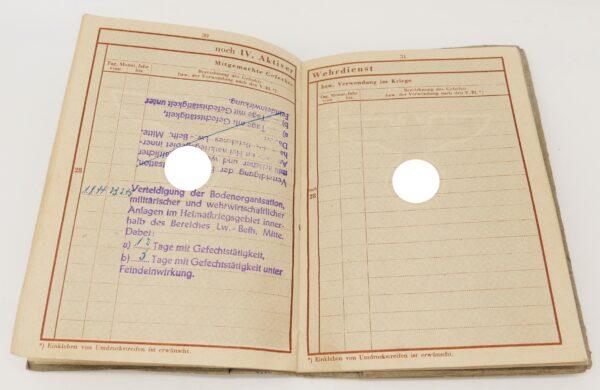 30
noch IV. Aktiver
Mitgemachte Gefechte
Tag, Monat, Jahr
von bis
Bezeichnung des Gefechts
bzw. der Verwendung nach den V. Bl. *)
b) Tage mit Gefechtstätigkeit unter
Feindeinwirkung.
a) Tage mit Gefechtstätigkeit,
28
Verteidigung der Bodenorganisation,
militärischer und wehrwirtschaftlicher
Anlagen im Heimatkriegsgebiet inner-
halb des Bereiches Lw.-Befh. Mitte.
Dabei:
a) Tage mit Gefechtstätigkeit,
b) 3 Tage mit Gefechtstätigkeit unter
Feindeinwirkung.
*) Einkleben von Umdruckstreifen ist erwünscht.
31
Wehrdienst
bzw. Verwendung im Kriege
Tag, Monat, Jahr
von bis
Bezeichnung des Gefechts
bzw. der Verwendung nach den V. Bl. *)
noch
28
*) Einkleben von Umdruckstreifen ist erwünscht.